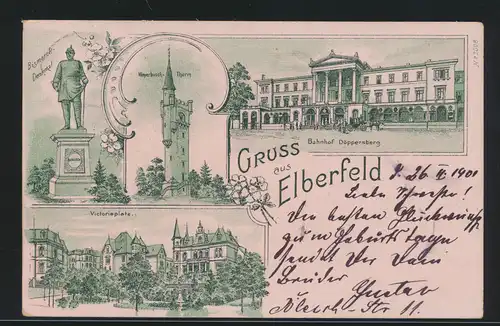 Bismarck-
Denkmal
Weyerbusch-
Thurm
Bahnhof Döppersberg
GRUSS
aus
Elberfeld
Victoriaplatz.
26 II 1901
Liebe Schwester!
Die besten Glückwünsche
zum Geburtstage
sendet dir Dein
Bruder Gustav
Str 11.